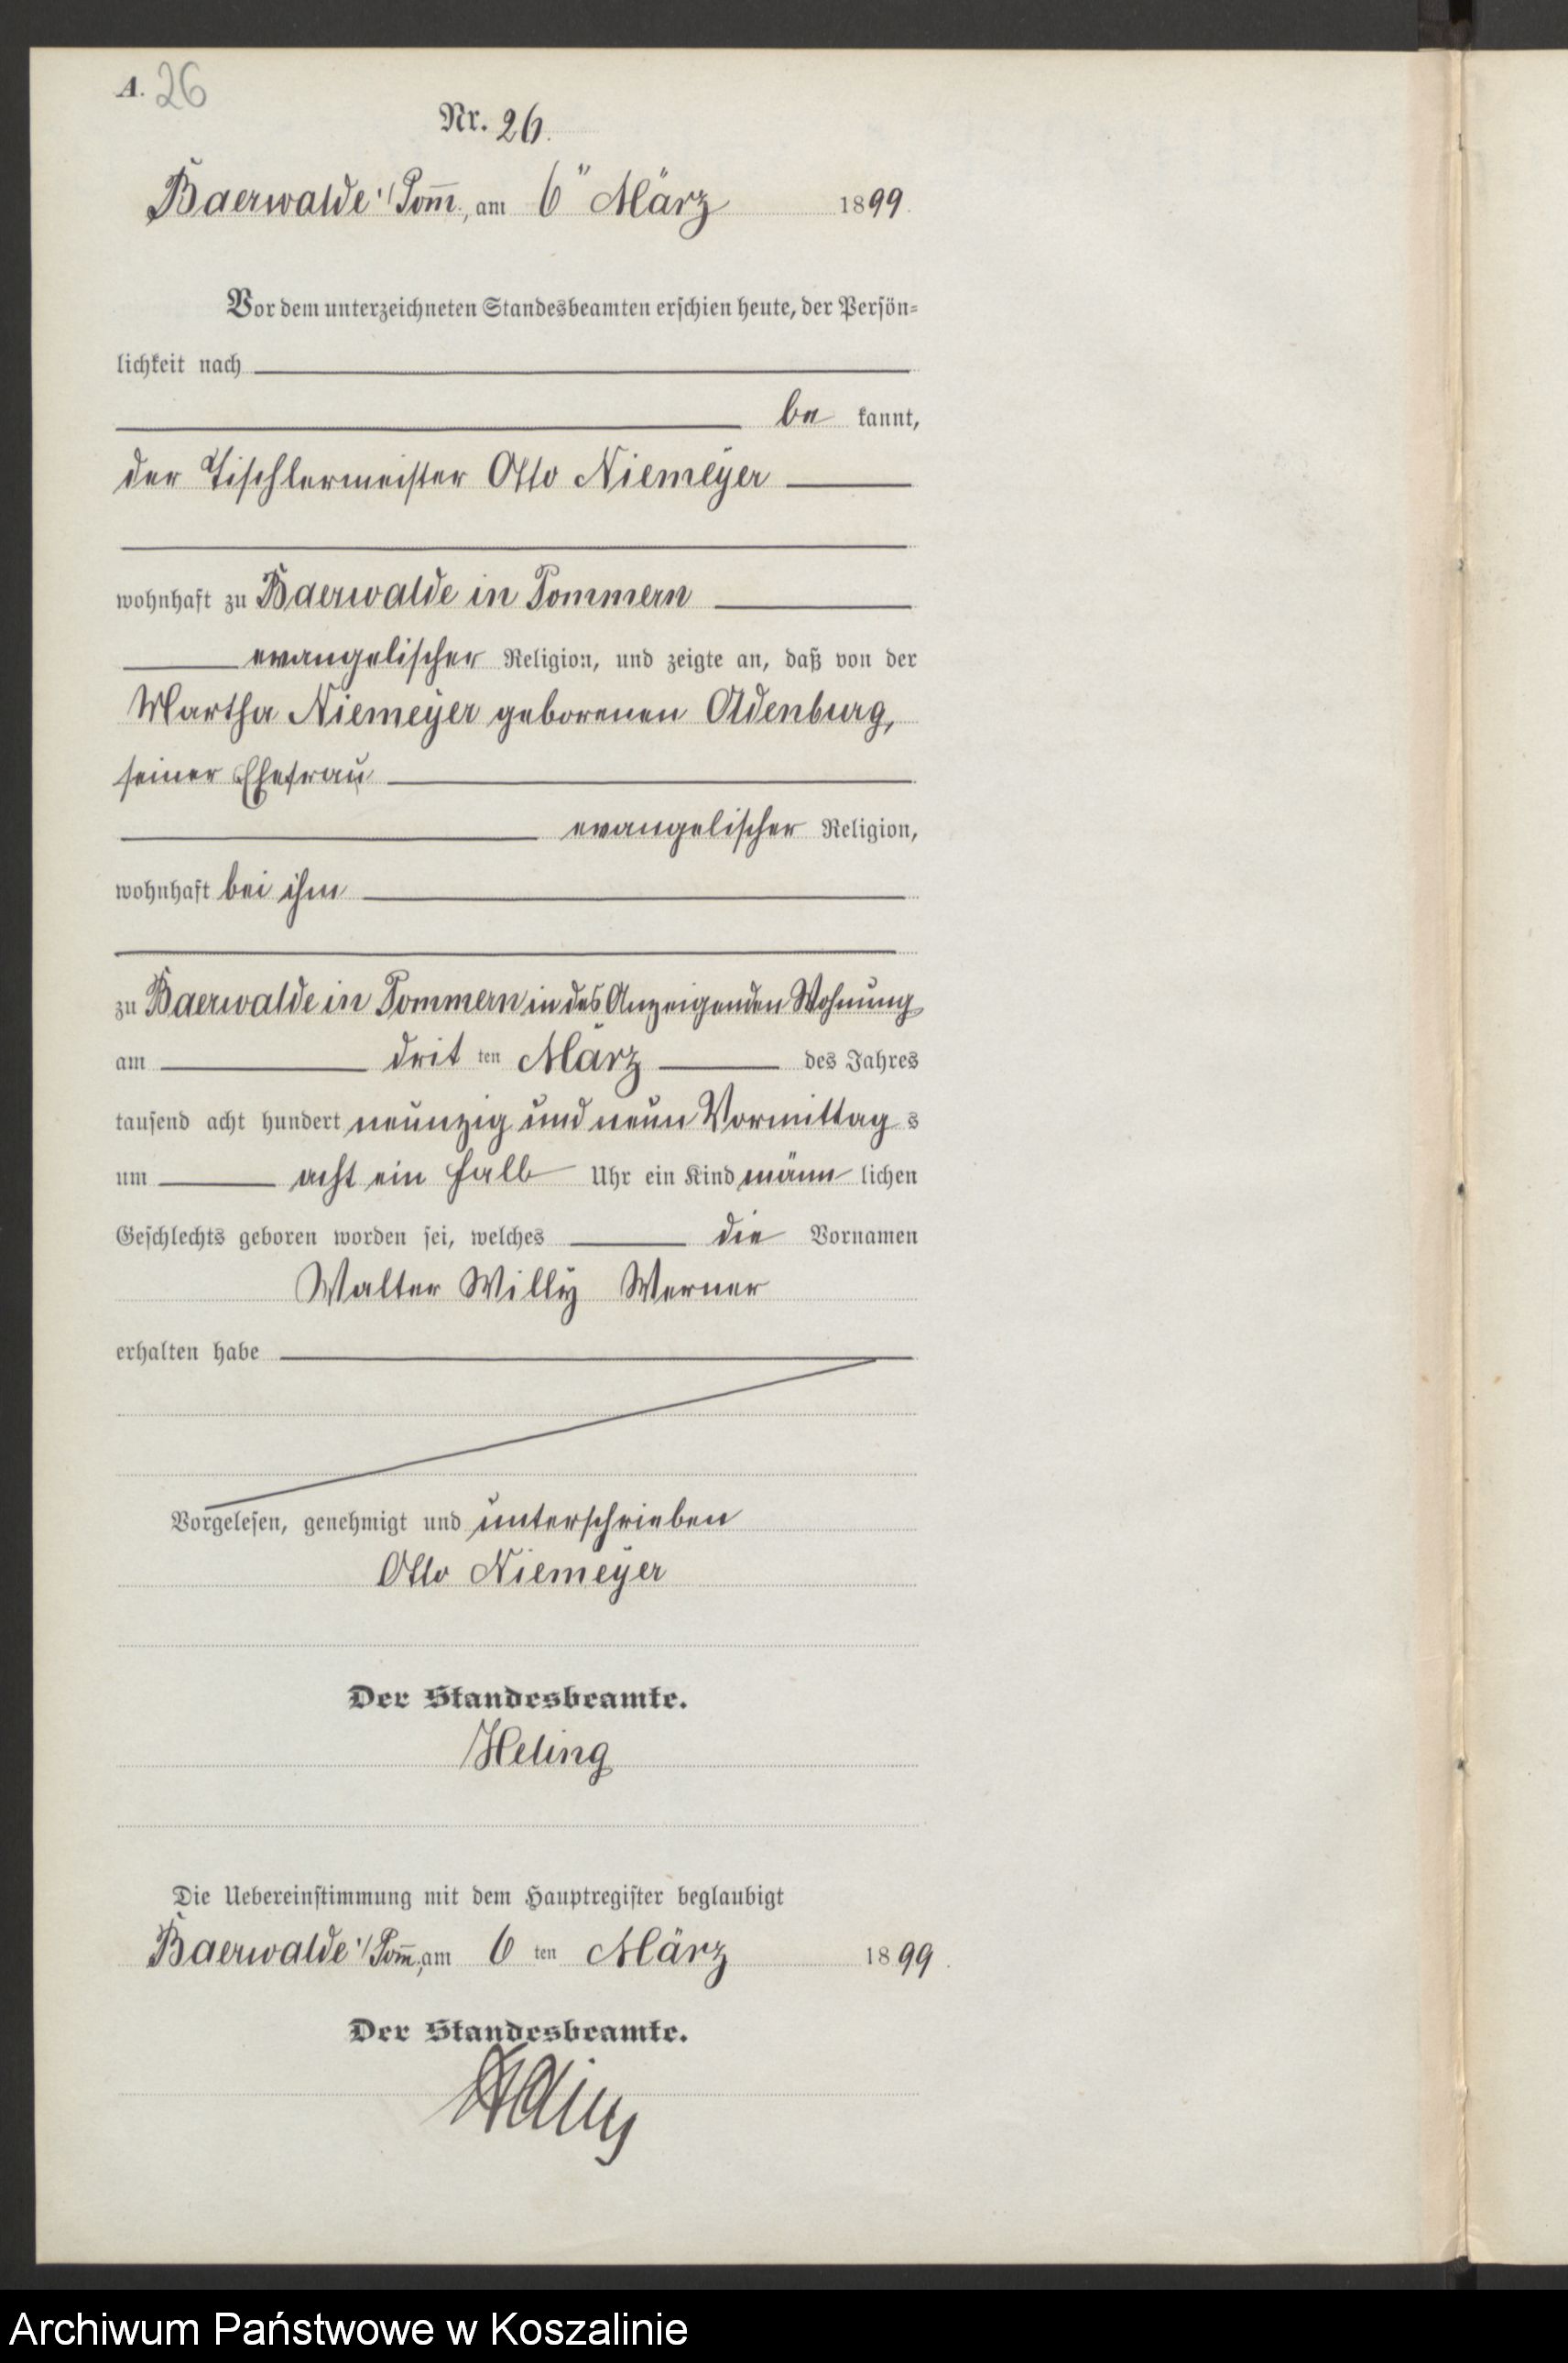 A. 26
Nr. 26.
Baerwalde i/Pom̄., am 6" März 1899.
Vor dem unterzeichneten Standesbeamten erschien heute, der Persön-
lichkeit nach
be kannt,
der Tischlermeister Otto Niemeyer
wohnhaft zu Baerwalde in Pommern
evangelischer Religion, und zeigte an, daß von der
Martha Niemeyer geborenen Oldenburg,
seiner Ehefrau
evangelischer Religion,
wohnhaft bei ihm
zu Baerwalde in Pommern in des Anzeigenden Wohnung
am drit ten März des Jahres
tausend acht hundert neunzig und neun Vormittag s
um acht ein halb Uhr ein Kind männ lichen
Geschlechts geboren worden sei, welches die Vornamen
Walter Willy Werner
erhalten habe
Vorgelesen, genehmigt und unterschrieben
Otto Niemeyer
Der Standesbeamte.
Heling
Die Uebereinstimmung mit dem Hauptregister beglaubigt
Baerwalde i/Pom̄., am 6 ten März 1899.
Der Standesbeamte.
Heling
Archiwum Państwowe w Koszalinie